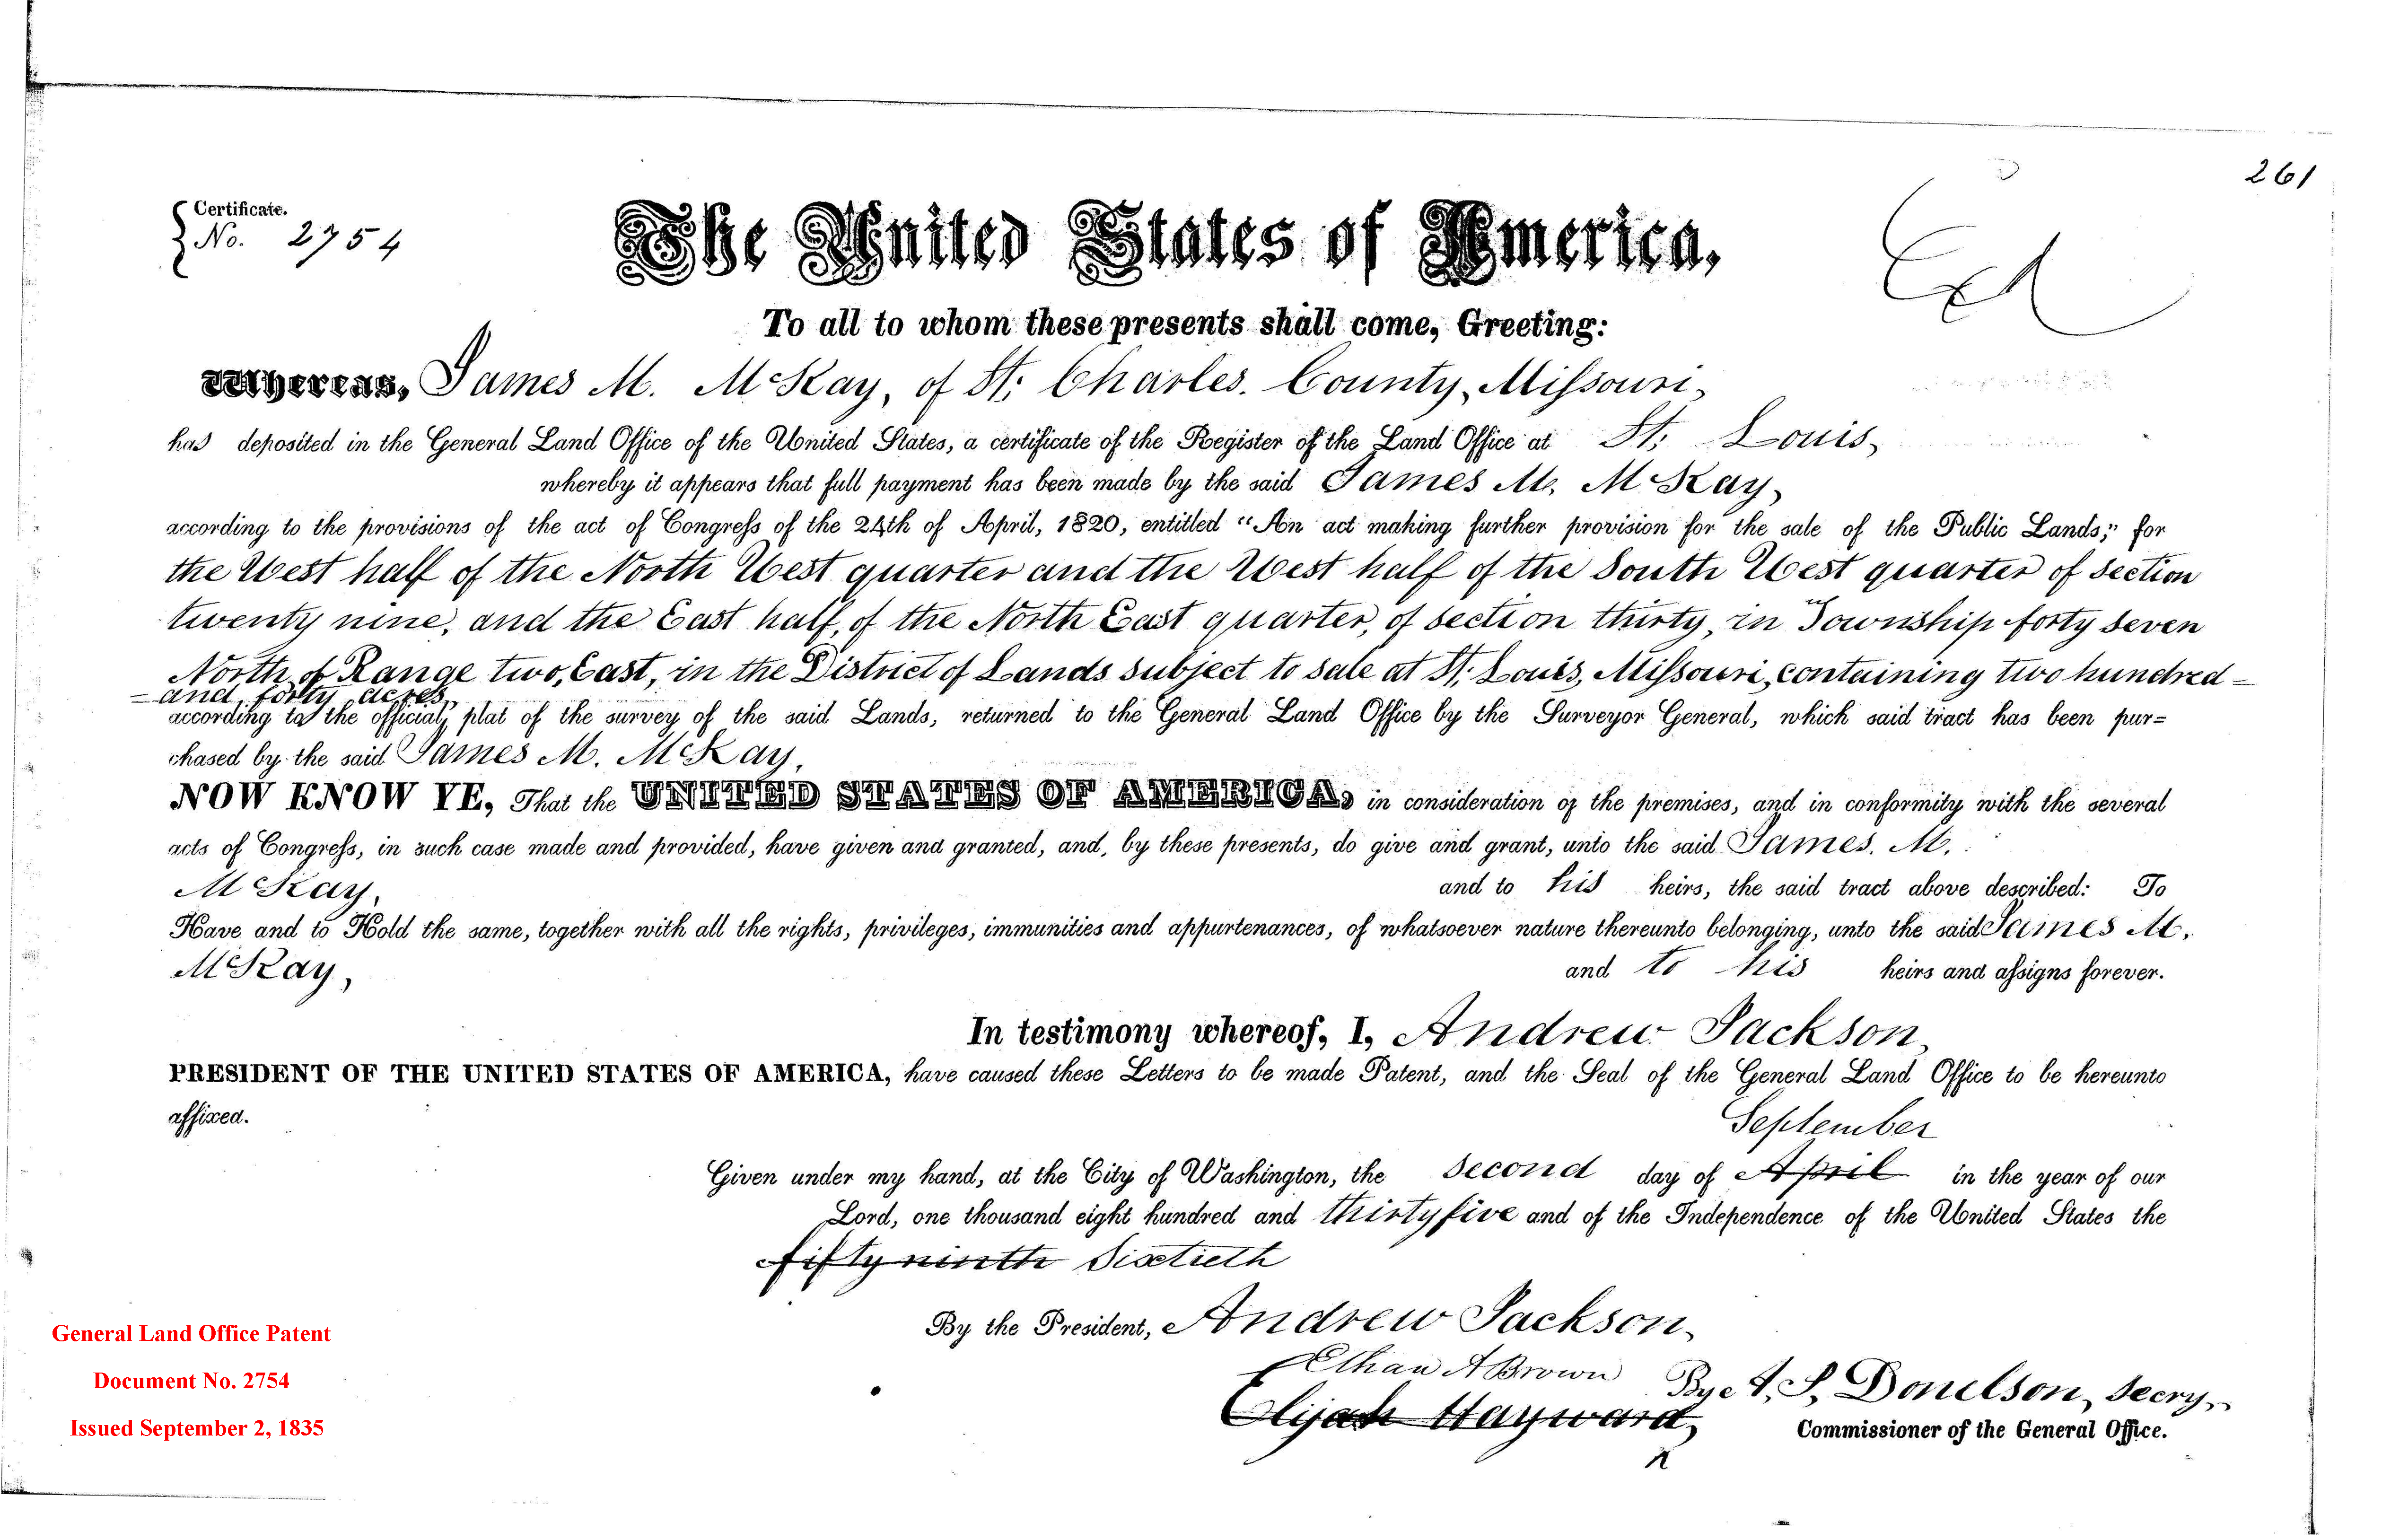 261
Certificate.
No. 2754
The United States of America,
To all to whom these presents shall come, Greeting:
Whereas, James M. McKay, of St. Charles. County, Missouri,
has deposited in the General Land Office of the United States, a certificate of the Register of the Land Office at St. Louis,
whereby it appears that full payment has been made by the said James M. McKay,
according to the provisions of the act of Congress of the 24th of April, 1820, entitled "An act making further provision for the sale of the Public Lands;" for
the West half of the North West quarter and the West half of the South West quarter of section
twenty nine, and the East half, of the North East quarter, of section thirty, in Township forty seven
North of Range two, East, in the District of Lands subject to sale at St. Louis, Missouri, containing two hundred
and forty acres,
according to the official plat of the survey of the said Lands, returned to the General Land Office by the Surveyor General, which said tract has been pur=
chased by the said James M. McKay,
NOW KNOW YE, That the UNITED STATES OF AMERICA, in consideration of the premises, and in conformity with the several
acts of Congress, in such case made and provided, have given and granted, and, by these presents, do give and grant, unto the said James. M.
McKay, and to his heirs, the said tract above described: To
Have and to Hold the same, together with all the rights, privileges, immunities and appurtenances, of whatsoever nature thereunto belonging, unto the said James M.
McKay, and to his heirs and assigns forever.
In testimony whereof, I, Andrew Jackson,
PRESIDENT OF THE UNITED STATES OF AMERICA, have caused these Letters to be made Patent, and the Seal of the General Land Office to be hereunto
affixed.
September
Given under my hand, at the City of Washington, the second day of April in the year of our
Lord, one thousand eight hundred and thirty five and of the Independence of the United States the
fifty ninth Sixtieth
By the President, Andrew Jackson,
Ethan A Brown By A. J. Donelson, Secry,
Elijah Hayward, Commissioner of the General Office.
General Land Office Patent
Document No. 2754
Issued September 2, 1835